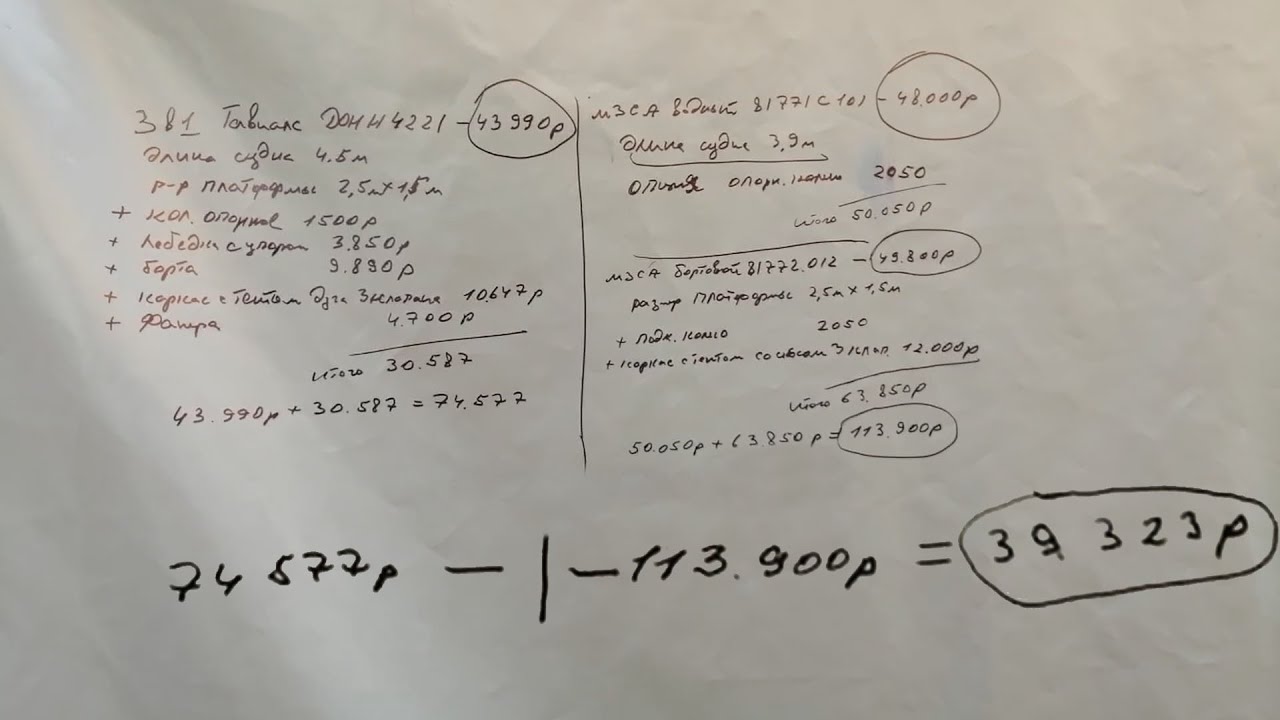 3в1 Тавиалс ДОНН4221 - 43990р
Длина судна 4.5м
р-р платформы 2,5м×1,5м
+ кол. опорное 1500р
+ лебедка с упором 3.850р
+ борта 9.890р
+ каркас с тентом Дуга 3 клапана 10.647р
+ Фанера 4.700р
итого 30.587
43.990р + 30.587 = 74.577
МЗСА 81771C101 - 48.000р
Длина судна 3,9м
опция опорн. колесо 2050
итого 50.050р
МЗСА бортовой 81772.012 - 49.800р
размер платформы 2,5м × 1,5м
+ подк. колесо 2050
+ каркас с тентом со 3 клап. 12.000р
итого 63.850р
50.050р + 63.850р = 113.900р
74 577р — | — 113.900р = 39 323р